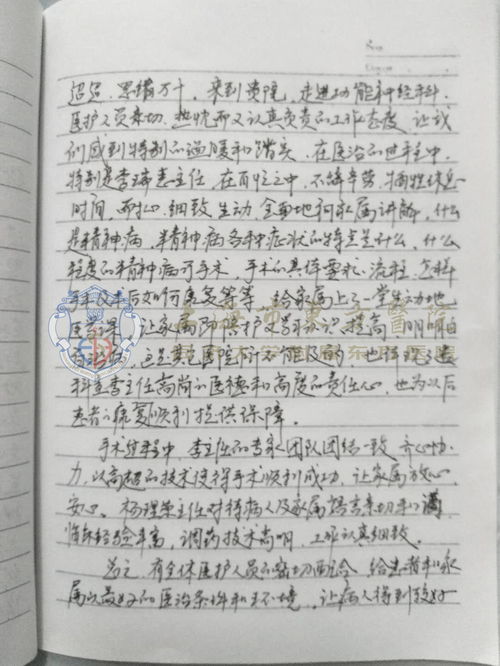 迢迢、思绪万千,来到贵院,走进功能神经科.
医护人员亲切、热忱而又认真负责的工作态度,让我
们感到特别的温暖和踏实。在医治的过程中,
特别是李瑞惠主任,在百忙之中,不辞辛劳,牺牲休息
时间,耐心、细致、生动、全面地和家属讲解,什么
是精神病,精神病各种症状的特点是什么,什么
程度的精神病可手术,手术的具体要求、流程、怎样
手术及术后如何康复等等,给家属上了一堂生动地
医学课,让家属陪护文学知识提高,明明白
这是其它医院所不能及的,也体现了
科室李主任高尚的医德和高度的责任心,也为以后
患者的病复顺利提供保障。
手术过程中,李主任的专家团队团结一致,齐心协
力,以高超的技术使得手术顺利成功,让家属放心、
安心。杨主任对待病人及家属语言亲切和蔼
临床经验丰富,调药技术高明,工作认真细致。
总之,有全体医护人员的密切配合,给患者和家
属以最好的医治条件和环境,让病人得到较好